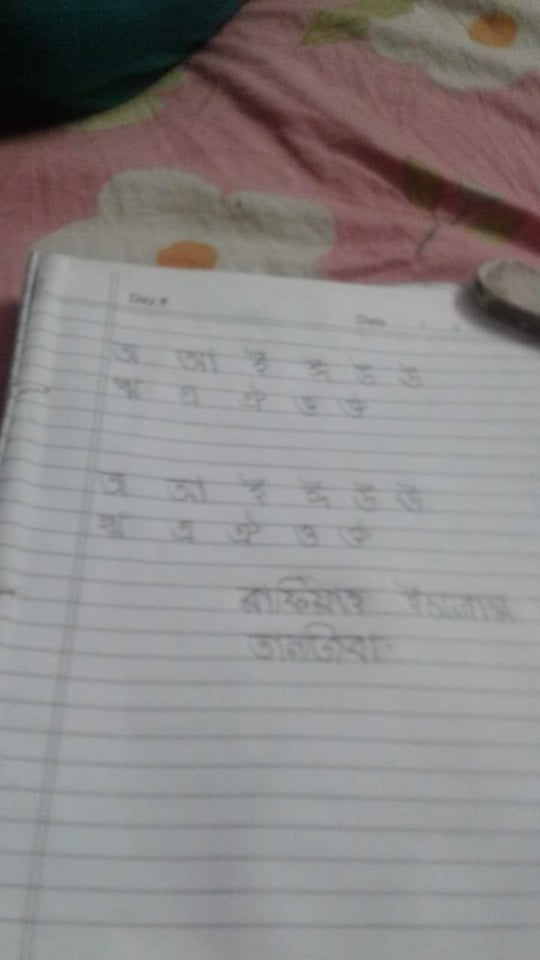 Day #
Date
অ আ ই ঈ উ ঊ
ঋ এ ঐ ও ঔ
অ আ ই ঈ উ ঊ
ঋ এ ঐ ও ঔ
ইসলাম
তানজিবা